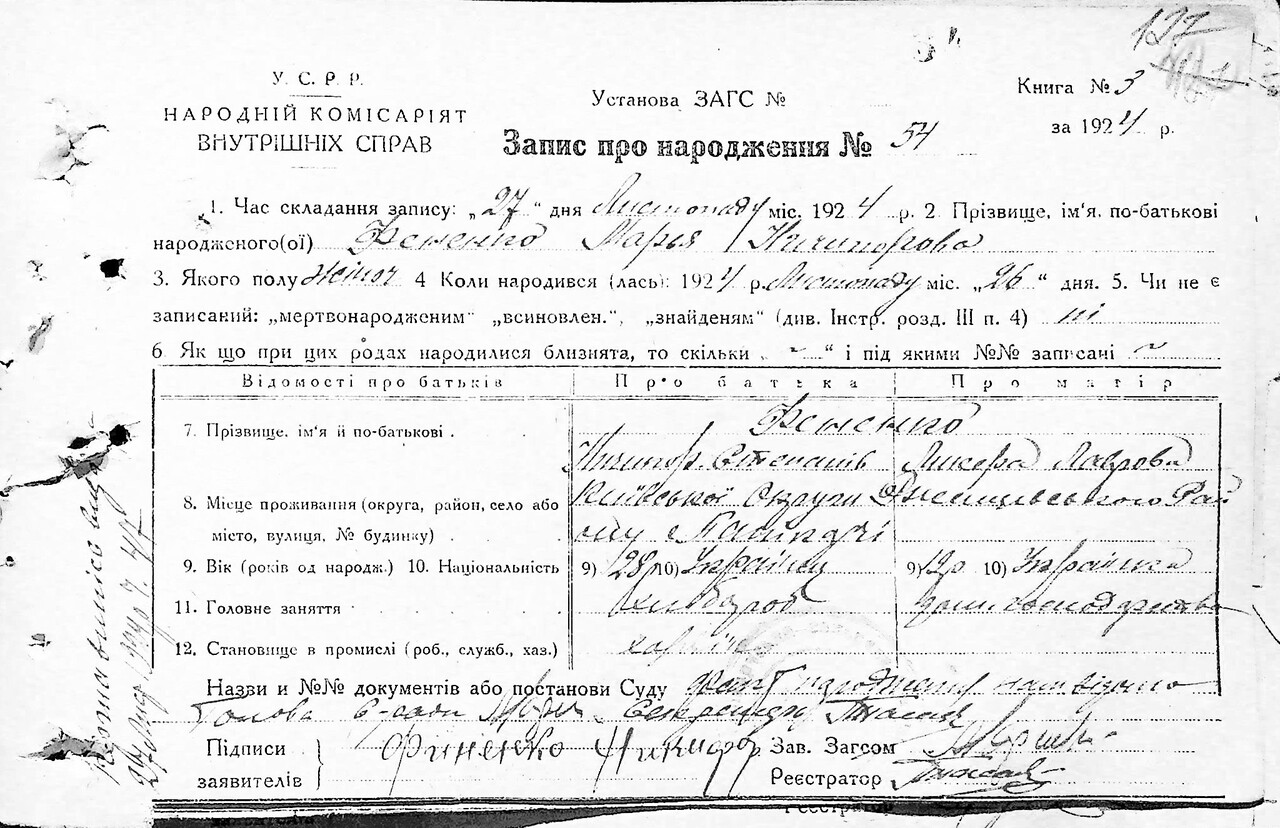 177
У. С. Р. Р.
НАРОДНІЙ КОМІСАРІЯТ
ВНУТРІШНІХ СПРАВ
Установа ЗАГС №
Книга № 3
за 1924 р.
Запис про народження № 54
1. Час складання запису: „27“ дня Листопаду міс. 1924 р. 2. Прізвище, ім'я, по-батькові
народженого(ої) Фененко Марья Ничипорова
3. Якого полу жіноч 4 Коли народився (лась): 1924 р. Листопаду міс. „26“ дня. 5. Чи не є
записаний: „мертвонародженим“ „всиновлен.“, „знайденям“ (див. Інстр. розд. III п. 4) ні
6. Як що при цих родах народилися близнята, то скільки „ ~ “ і під якими №№ записані ~
Відомості про батьків Про батька Про матір
7. Прізвище, ім'я й по-батькові . Фененко
Ничипор Степанів Ликера Лаврова
8. Місце проживання (округа, район, село або Київської Округи Ржищівського Рай
місто, вулиця, № будинку) . ону с
9. Вік (років од народж.) 10. Національність 9) 28 10) Українц 9) 20 10) Українка
11. Головне заняття хлібороб дом. господарства
12. Становище в промислі (роб., служб., хаз.) хазяїн
Назви и №№ документів або постанови Суду Факт народження нам відомо
Голова С-ради Секретарь
Підписи
заявителів
Финенко Никифор
Зав. Загсом
Реєстратор